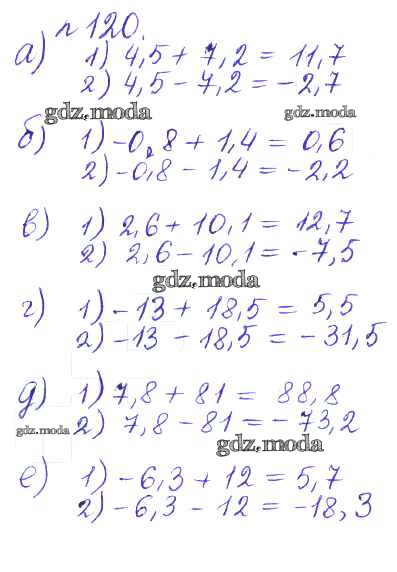 № 120.
а) 1) 4,5 + 7,2 = 11,7
2) 4,5 - 7,2 = -2,7
gdz.moda gdz.moda
б) 1) -0,8 + 1,4 = 0,6
2) -0,8 - 1,4 = -2,2
в) 1) 2,6 + 10,1 = 12,7
2) 2,6 - 10,1 = -7,5
gdz.moda
г) 1) -13 + 18,5 = 5,5
2) -13 - 18,5 = -31,5
д) 1) 7,8 + 81 = 88,8
gdz.moda 2) 7,8 - 81 = -73,2
gdz.moda
е) 1) -6,3 + 12 = 5,7
2) -6,3 - 12 = -18,3